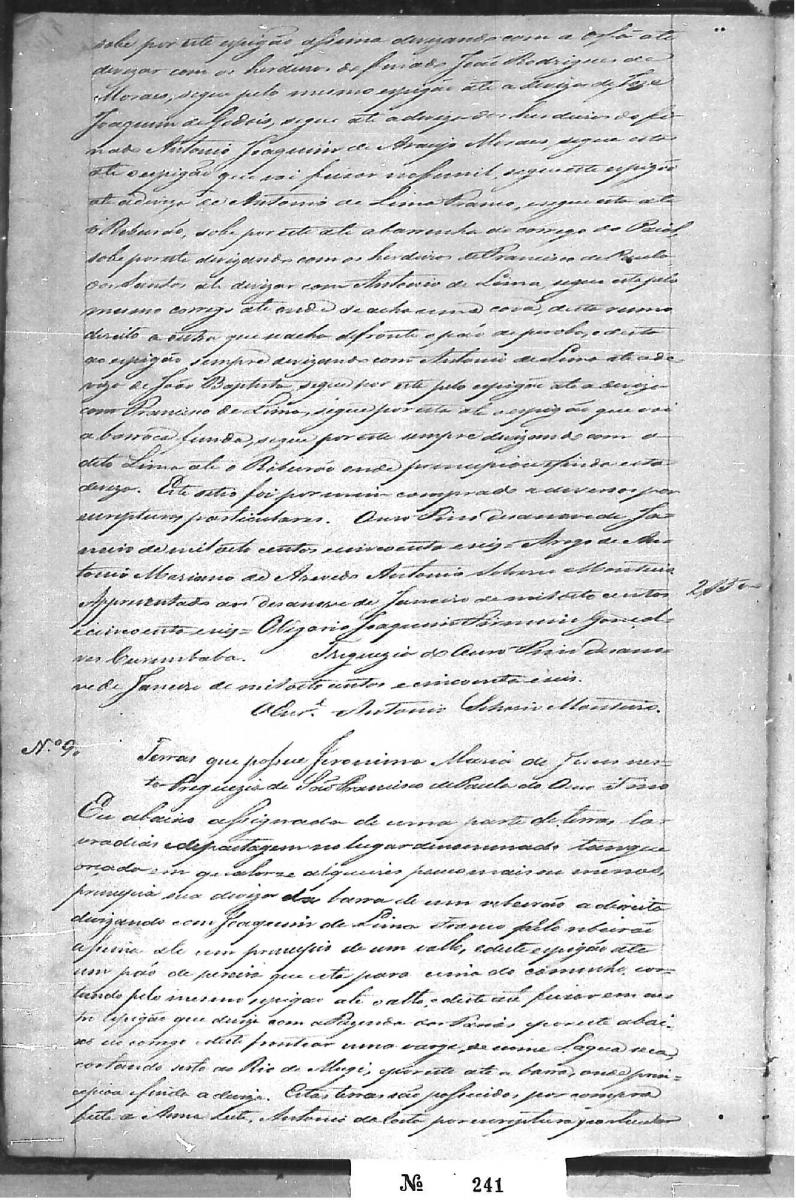 sobe por este espigão assima devizando com a até
devizar com os herdeiros do finado João Rodrigues de
Moraes, segue pelo mesmo espigão até a deviza de José
Joaquim de Godois, segue até a deviza dos herdeiros do fi-
nado Antonio Joaquim de Araujo Moraes, segue esta
até o espigão que vai fuxar no funil, segue este espigão
até a deviza de Antonio de Lima Franco, e segue esta até
o Ribeirão, sobe por este até a barrinha do corrego do Paiol,
sobe por este devizando com os herdeiros de Francisco de Paula
dos Santos até devizar com Antonio de Lima, segue esta pelo
mesmo corrego até onde se acha uma cova, desta rumo
direito a outra que se acha defronte o páo de peroba, e desta
ao espigão sempre devizando com Antonio de Lima até a de-
viza de João Baptista, segue por este pelo espigão até a deviza
com Francisco de Lima, segue por esta até o espigão que vai
a barróca funda, segue por este sempre devizando com o
dito Lima até o Ribeirão onde principiou e finda esta
deviza. Este sitio foi por mim comprado a diversos por
escripturas particulares. Ouro Fino desanove de Ja-
neiro de mil oito centos e cincoenta e seis = Arogo de An-
tonio Mariano de Azevedo Antonio Monteiro
Appresentado aos desanove de Janeiro de mil oito centos
e cincoenta e seis = Oligario Joaquim Gonçal-
ves Curumbaba. Freguezia do Ouro Fino desano-
ve de Janeiro de mil oito centos e cincoenta e seis.
O Antonio Monteiro.
N.º 9.
Terras que possue Jeronima Maria de Jesus nes-
ta Freguezia de São Francisco de Paula do Ouro Fino
Eu abaixo assignada de uma parte de terras la-
vradias e de pastagem no lugar denominado tanque
em quatorze alqueires pouco mais ou menos,
principia sua deviza da barra de um ribeirão a direita
devizando com Joaquim de Lima Franco pelo ribeirão
assima até um principio de um vallo, e deste espigão até
um páo de pereira que esta para cima do caminho, cor-
tando pelo mesmo espigão até o alto, e deste até fuxar em ou-
tro espigão que deviza com a Fazenda dos Paiás e por este abai-
xo ao corrego e deste frontear uma varge, de nome Lagoa seca,
cortando reito ao Rio de Mogi, e por este até a barra, onde prin-
cipiou e finda a deviza. Estas terras são possuidas por compra
feita a Anna Leite, Antonio da Costa por escriptura particular
№ 241